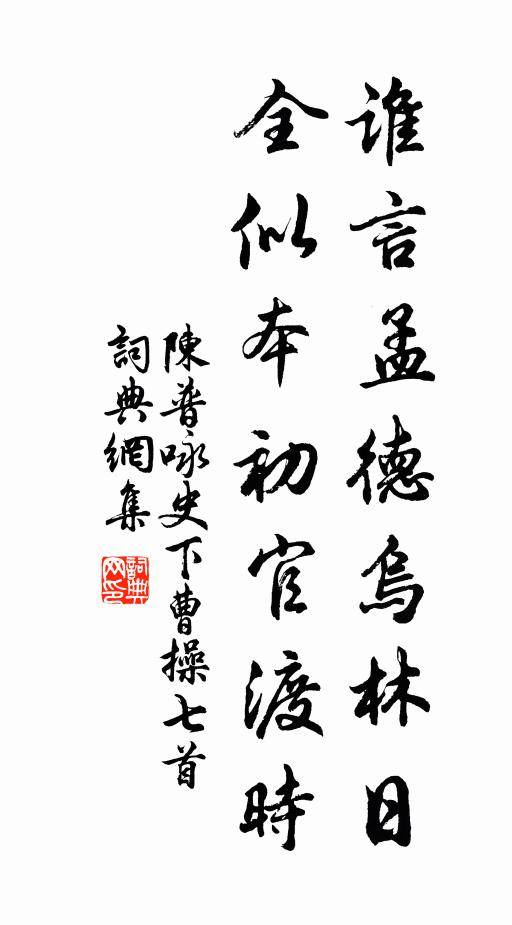 誰言孟德烏林日
全似本初官渡時
陳普咏史下曹操七首
詞典網集
詞典網印